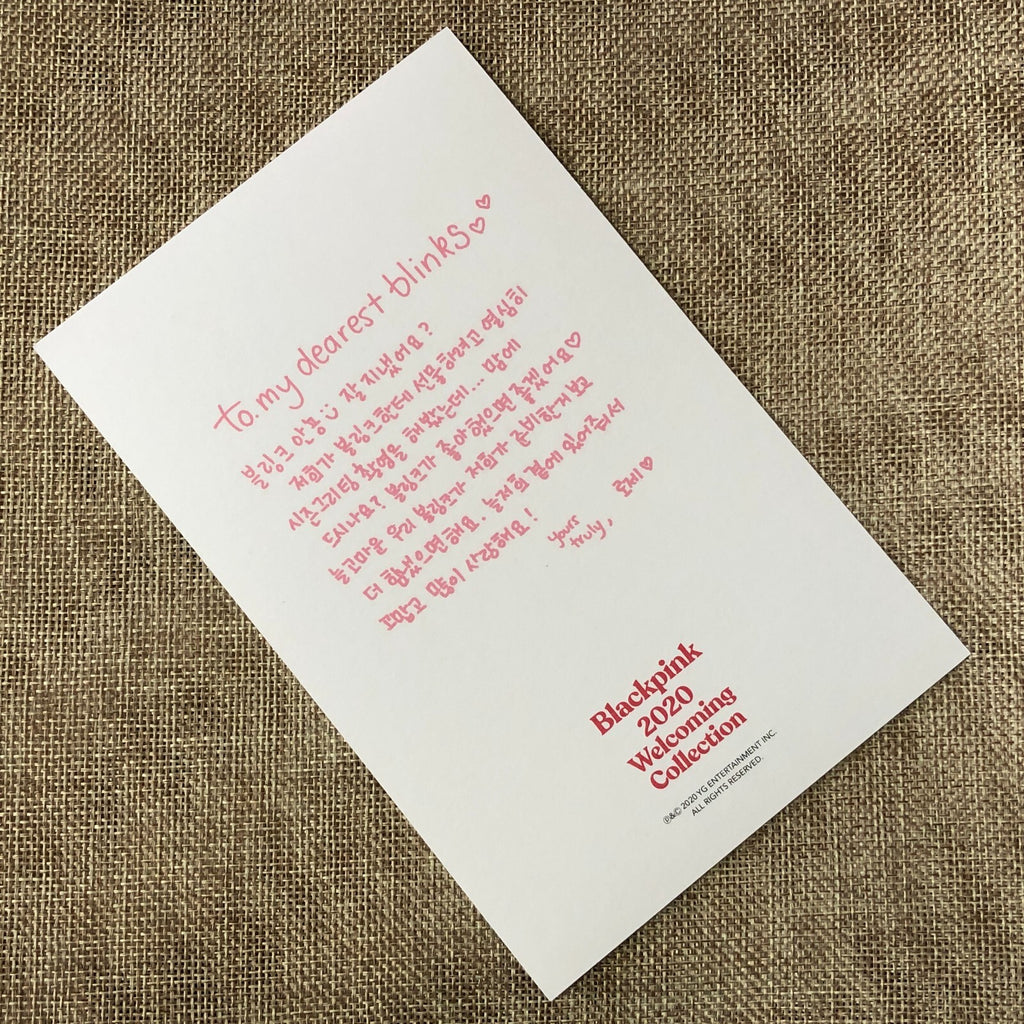 to. my dearest blinks♡♡
블링크 안뇽:) 잘 지냈어요?
저희가 블링크한테 선물하려고 열심히
시즌그리팅 촬영을 해봤는데... 맘에
드시나요? 블링크가 좋아했으면 좋겠어요♡
늘 고마운 우리 블링크가 저희가 준비한게 보고
더 힘냈으면해요. 늘 저희 곁에 있어줘서
고맙고 많이 사랑해요!
yours
truly,
로제♡
Blackpink
2020
Welcoming
Collection
℗&© 2020 YG ENTERTAINMENT INC.
ALL RIGHTS RESERVED.